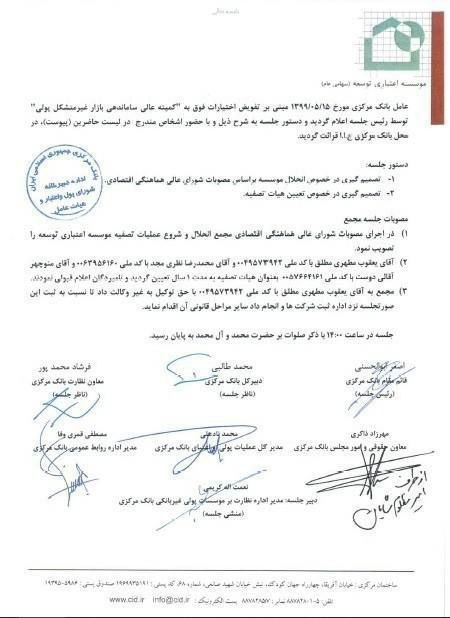 باسمه تعالی
موسسه اعتباری توسعه (سهامی عام)
عامل بانک مرکزی مورخ ۱۳۹۹/۰۵/۱۵ مبنی بر تفویض اختیارات فوق به "کمیته عالی ساماندهی بازار غیرمتشکل پولی"
توسط رئیس جلسه اعلام گردید و دستور جلسه به شرح ذیل و با حضور اشخاص مندرج در لیست حاضرین (پیوست)، در
محل بانک مرکزی ج.ا.ا قرائت گردید.
دستور جلسه:
۱- تصمیم گیری در خصوص انحلال موسسه براساس مصوبات شورای عالی هماهنگی اقتصادی.
۲- تصمیم گیری در خصوص تعیین هیات تصفیه.
بانک مرکزی جمهوری اسلامی ایران
اداره دبیرخانه
شورای پول و اعتبار و
هیات عامل
مصوبات جلسه مجمع
۱) در اجرای مصوبات شورای عالی هماهنگی اقتصادی مجمع انحلال و شروع عملیات تصفیه موسسه اعتباری توسعه را
تصویب نمود.
۲) آقای یعقوب مطهری مطلق با کد ملی ۰۰۴۹۵۷۳۹۴۲ و آقای محمدرضا نظری مجد با کد ملی ۰۰۶۳۹۵۶۱۶۰ و آقای منوچهر
آقائی دوست با کد ملی ۰۰۵۷۶۶۴۱۶۱ بعنوان هیات تصفیه به مدت ۱ سال تعیین گردید و نامبردگان اعلام قبولی نمودند.
۳) مجمع به آقای یعقوب مطهری مطلق با کد ملی ۰۰۴۹۵۷۳۹۴۲ با حق توکیل به غیر وکالت داد تا نسبت به ثبت این
صورتجلسه نزد اداره ثبت شرکت ها و انجام سایر مراحل قانونی آن اقدام نماید.
جلسه در ساعت ۱۴:۰۰ با ذکر صلوات بر حضرت محمد و آل محمد به پایان رسید.
اصغر ابوالحسنی محمد طالبی فرشاد محمد پور
قائم مقام بانک مرکزی دبیرکل بانک مرکزی معاون نظارت بانک مرکزی
(رئیس جلسه) (ناظر جلسه) (ناظر جلسه)
مهرزاد ذاکری محمد نادعلی مصطفی قمری وفا
معاون حقوقی و امور مجلس بانک مرکزی مدیر کل عملیات پولی و اعتباری بانک مرکزی مدیر اداره روابط عمومی بانک مرکزی
نعمت اله کریمی
دبیر جلسه: مدیر اداره نظارت بر موسسات پولی غیربانکی بانک مرکزی
(منشی جلسه)
از طرف
ساختمان مرکزی: خیابان آفریقا، چهارراه جهان کودک، نبش خیابان شهید صانعی، شماره ۶۸، کد پستی: ۱۹۶۹۹۳۵۱۹۱ صندوق پستی: ۵۹۸۶-۱۹۳۹۵
تلفن: ۵-۸۸۷۸۲۸۰۱ نمابر: ۸۸۷۸۲۸۵۷ پست الکترونیک: info@cid.ir www.cid.ir